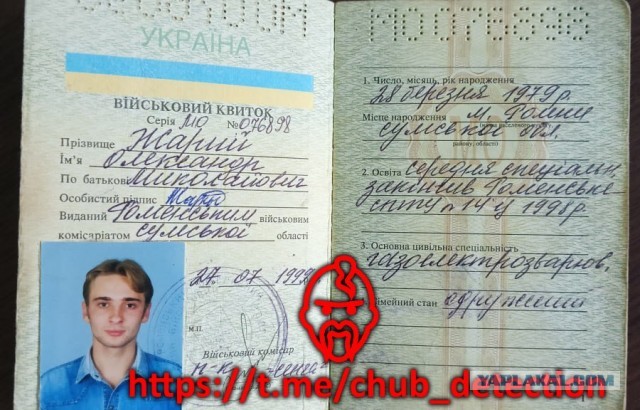 УКРАЇНА
ВІЙСЬКОВИЙ КВИТОК
Серія МО №076898
Прізвище Жарий
Ім'я Олександр
По батькові Миколайович
Особистий підпис
Виданий Роменським військовим
комісаріатом Сумської області
27. 07 199
М.П.
Військовий комісар
п-к
1. Число, місяць, рік народження
28 березня 1979р.
Місце народження м. Ромни
Сумської обл.
району, області
2. Освіта середня спеціальн.
закінчив Роменське
СПТУ №14 у 1998р.
3. Основна цивільна спеціальність
газоелектрозварюв.
імейний стан одружений
https://t.me/chub_detection
YAPLAKAL.COM